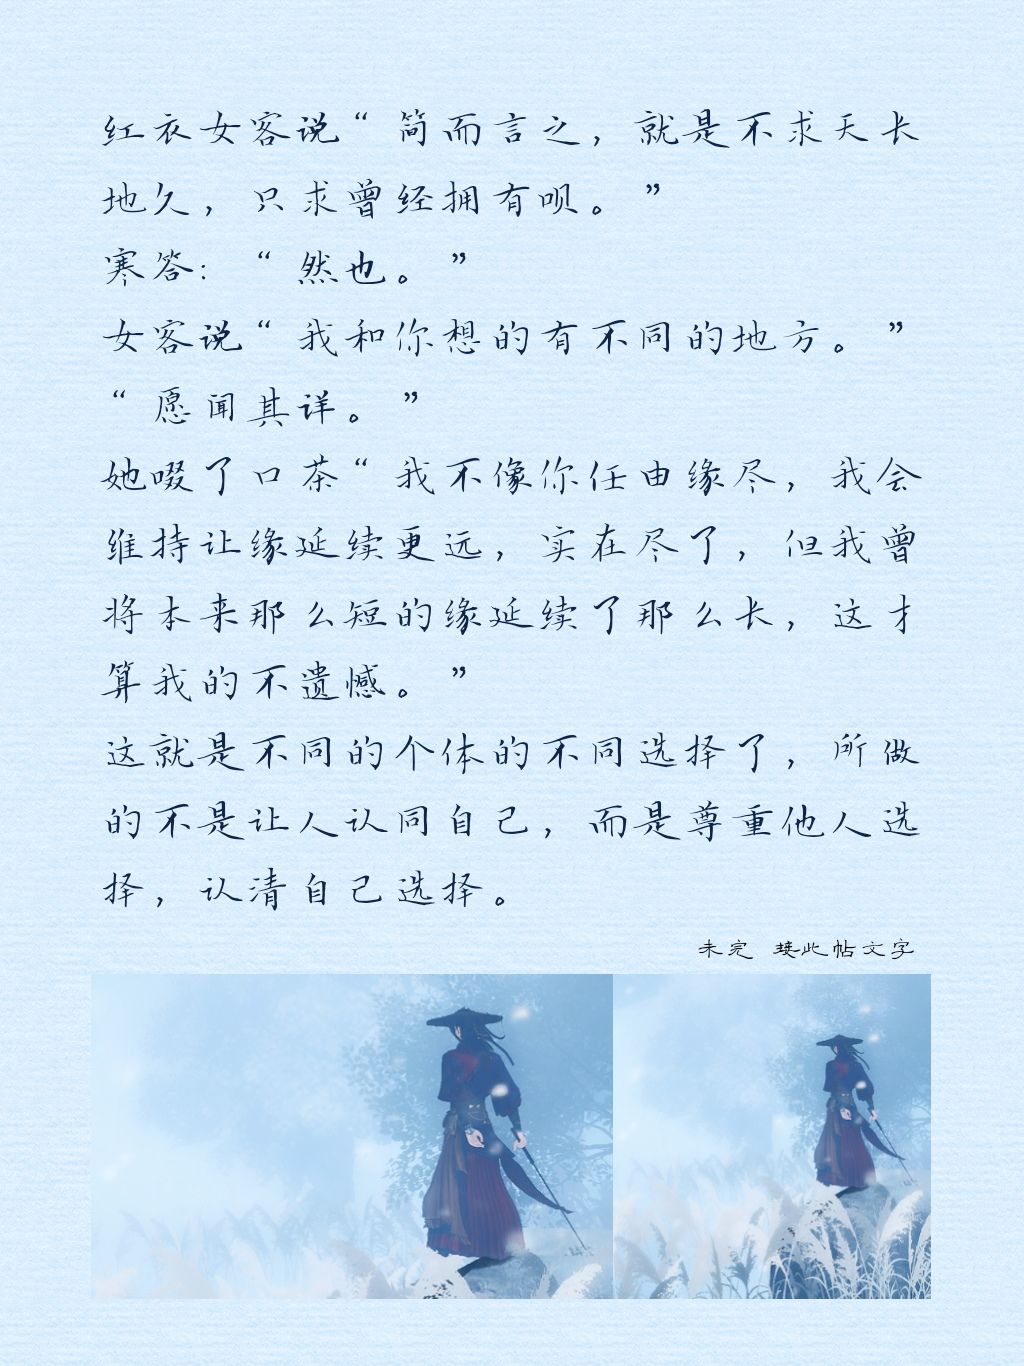 红衣女客说“简而言之，就是不求天长
地久，只求曾经拥有呗。”
寒答：“然也。”
女客说“我和你想的有不同的地方。”
“愿闻其详。”
她啜了口茶“我不像你任由缘尽，我会
维持让缘延续更远，实在尽了，但我曾
将本来那么短的缘延续了那么长，这才
算我的不遗憾。”
这就是不同的个体的不同选择了，所做
的不是让人认同自己，而是尊重他人选
择，认清自己选择。
未完 接此帖文字